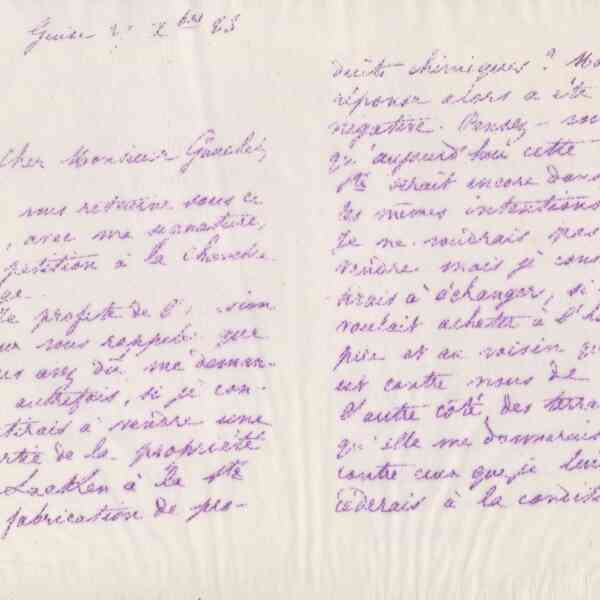 Guise 2 Xbre 83
Cher Monsieur
vous retourne sous ce
, avec ma signature,
petition à la Chambre
ge.
Je profite de l'  sion
our vous rappeler que
us avez dû me deman-
autrefois, si je con-
tirais à vendre une
artie de la propriété
Laeken à la Sté
fabrication de pro-
duits chimiques? Ma
réponse alors a été
négative. Pensez-vous
qu'aujourd'hui cette
Sté serait encore dans
les mêmes intentions
Je ne voudrais pas
vendre mais je cons
tirais à échanger, si
voulait acheter à l'
et au voisin qui
est contre nous de
l'autre côté, des terra
qu'elle me donnerait
contre ceux que je lui
cèderais à la conditi